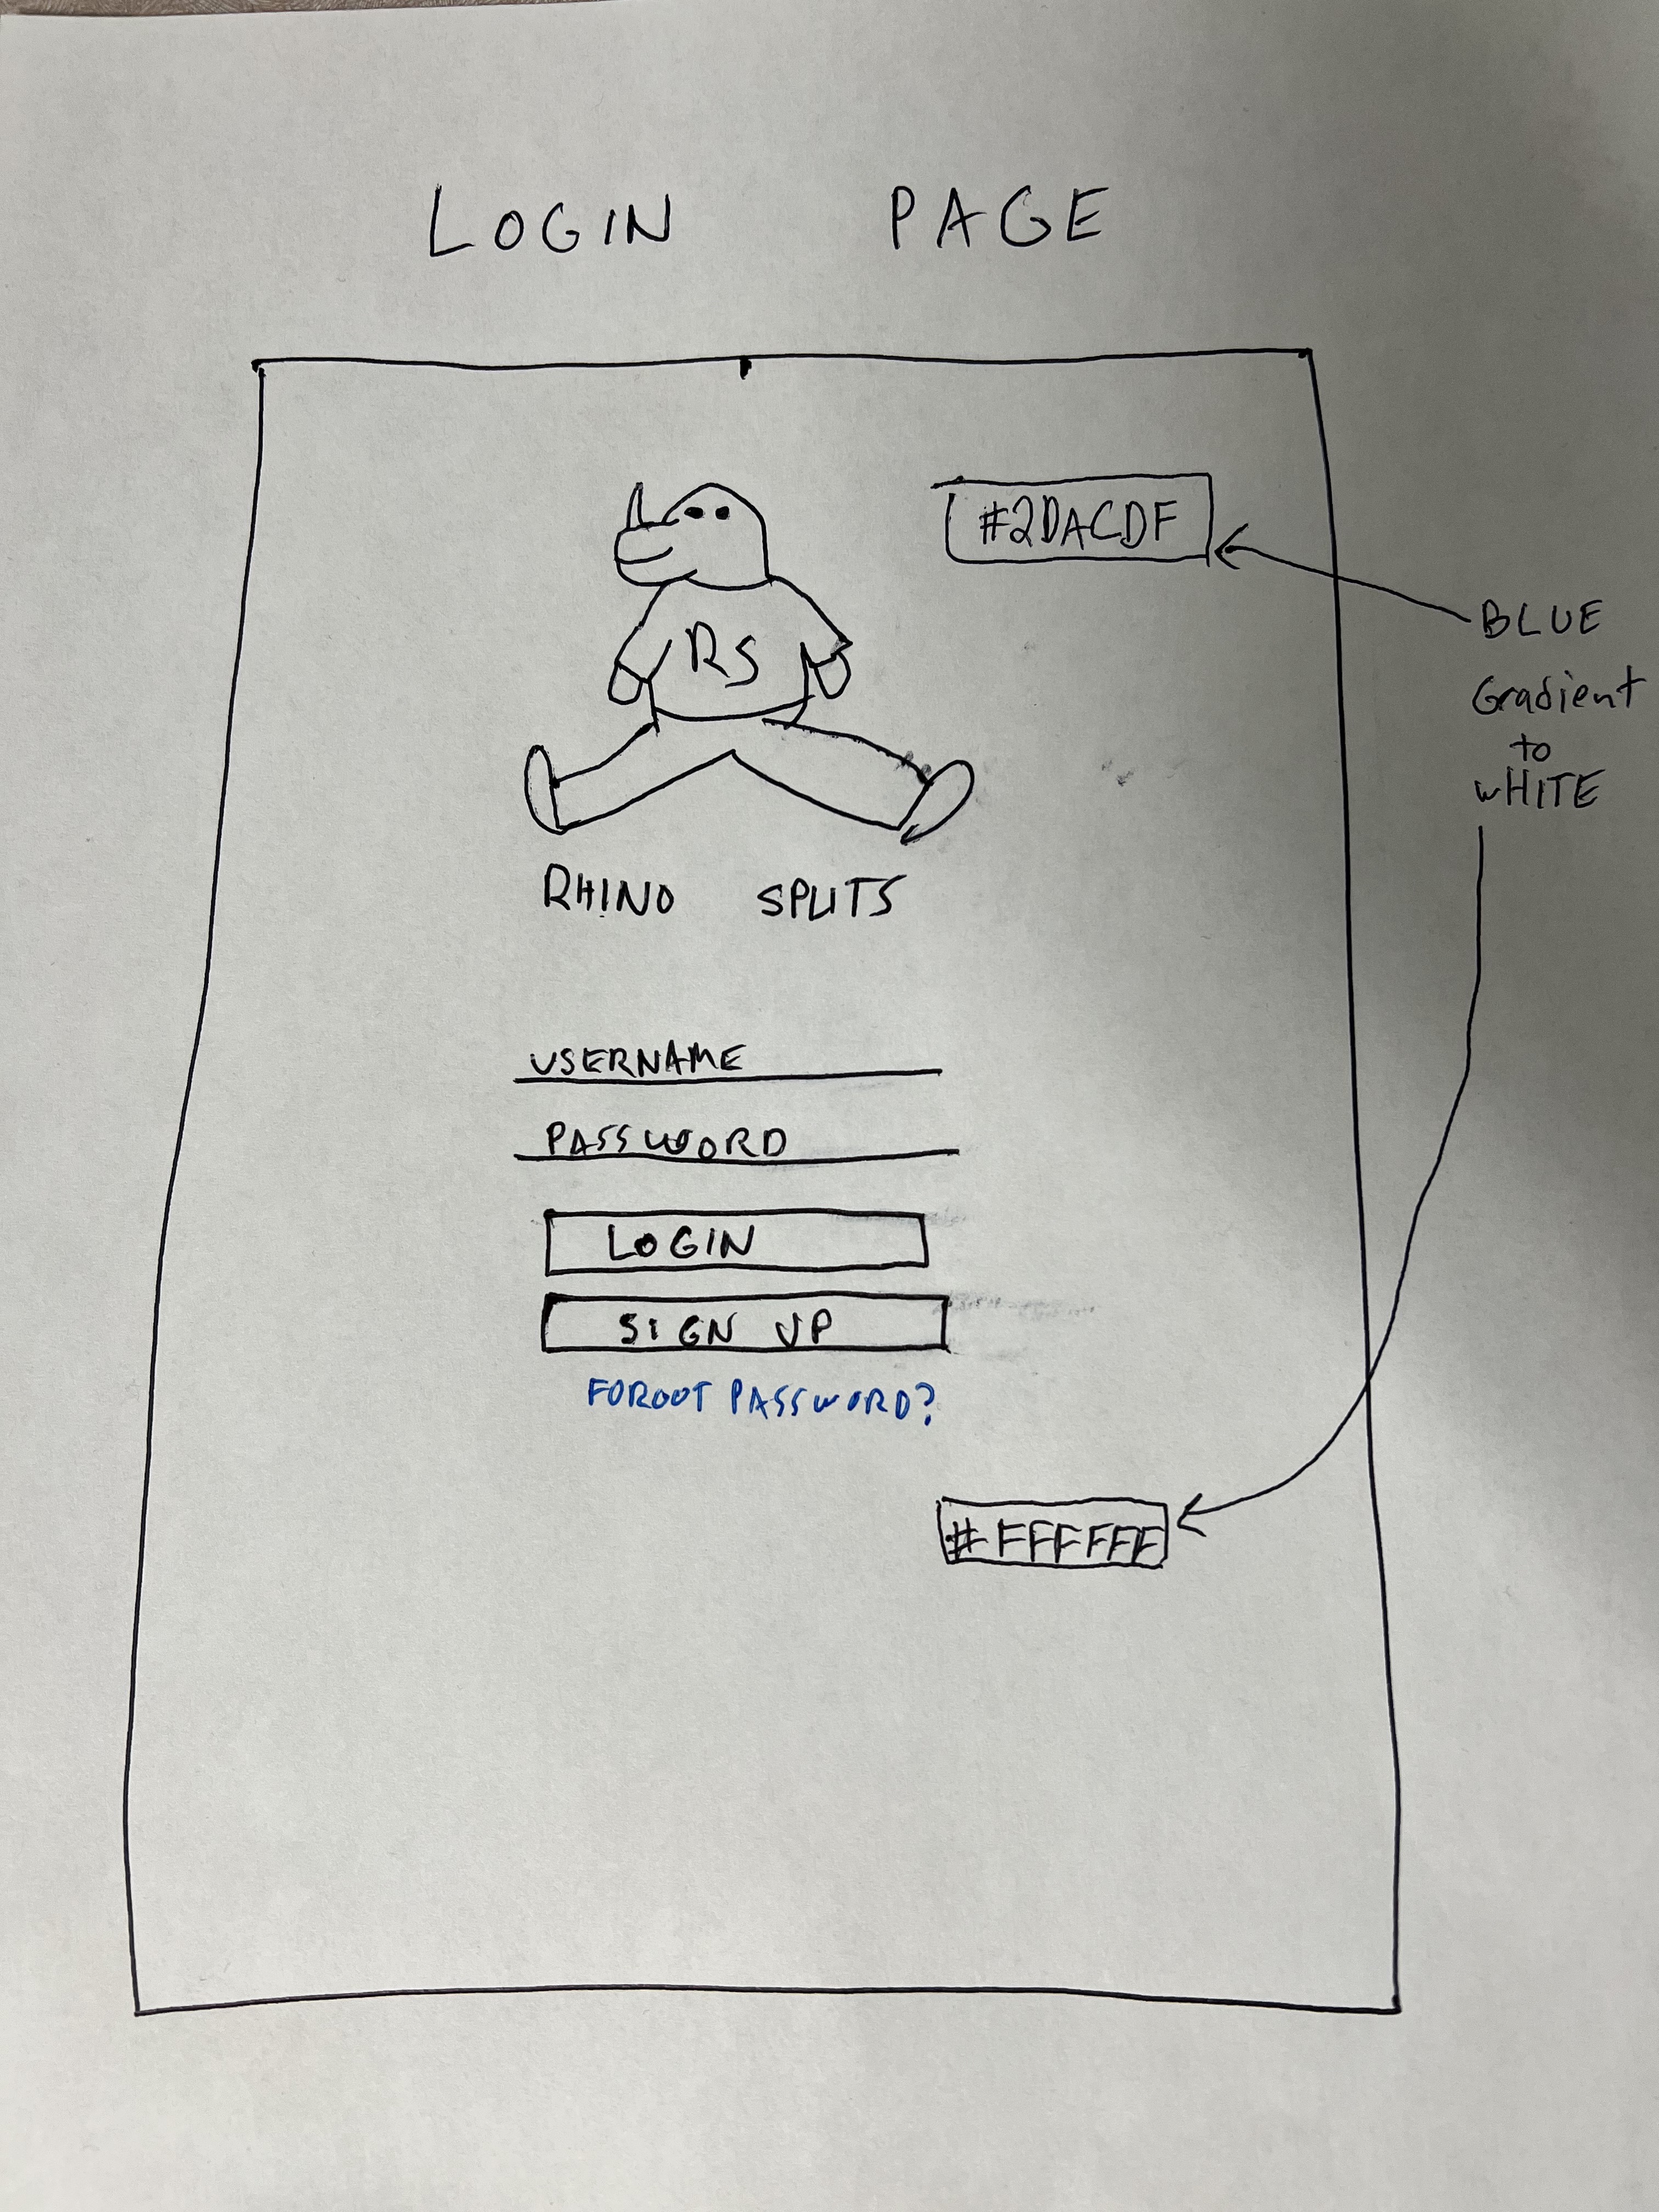 LOGIN PAGE
#2DACDF
BLUE
Gradient
to
WHITE
RS
RHINO SPLITS
USERNAME
PASSWORD
LOGIN
SIGN UP
FORGOT PASSWORD?
#FFFFFF